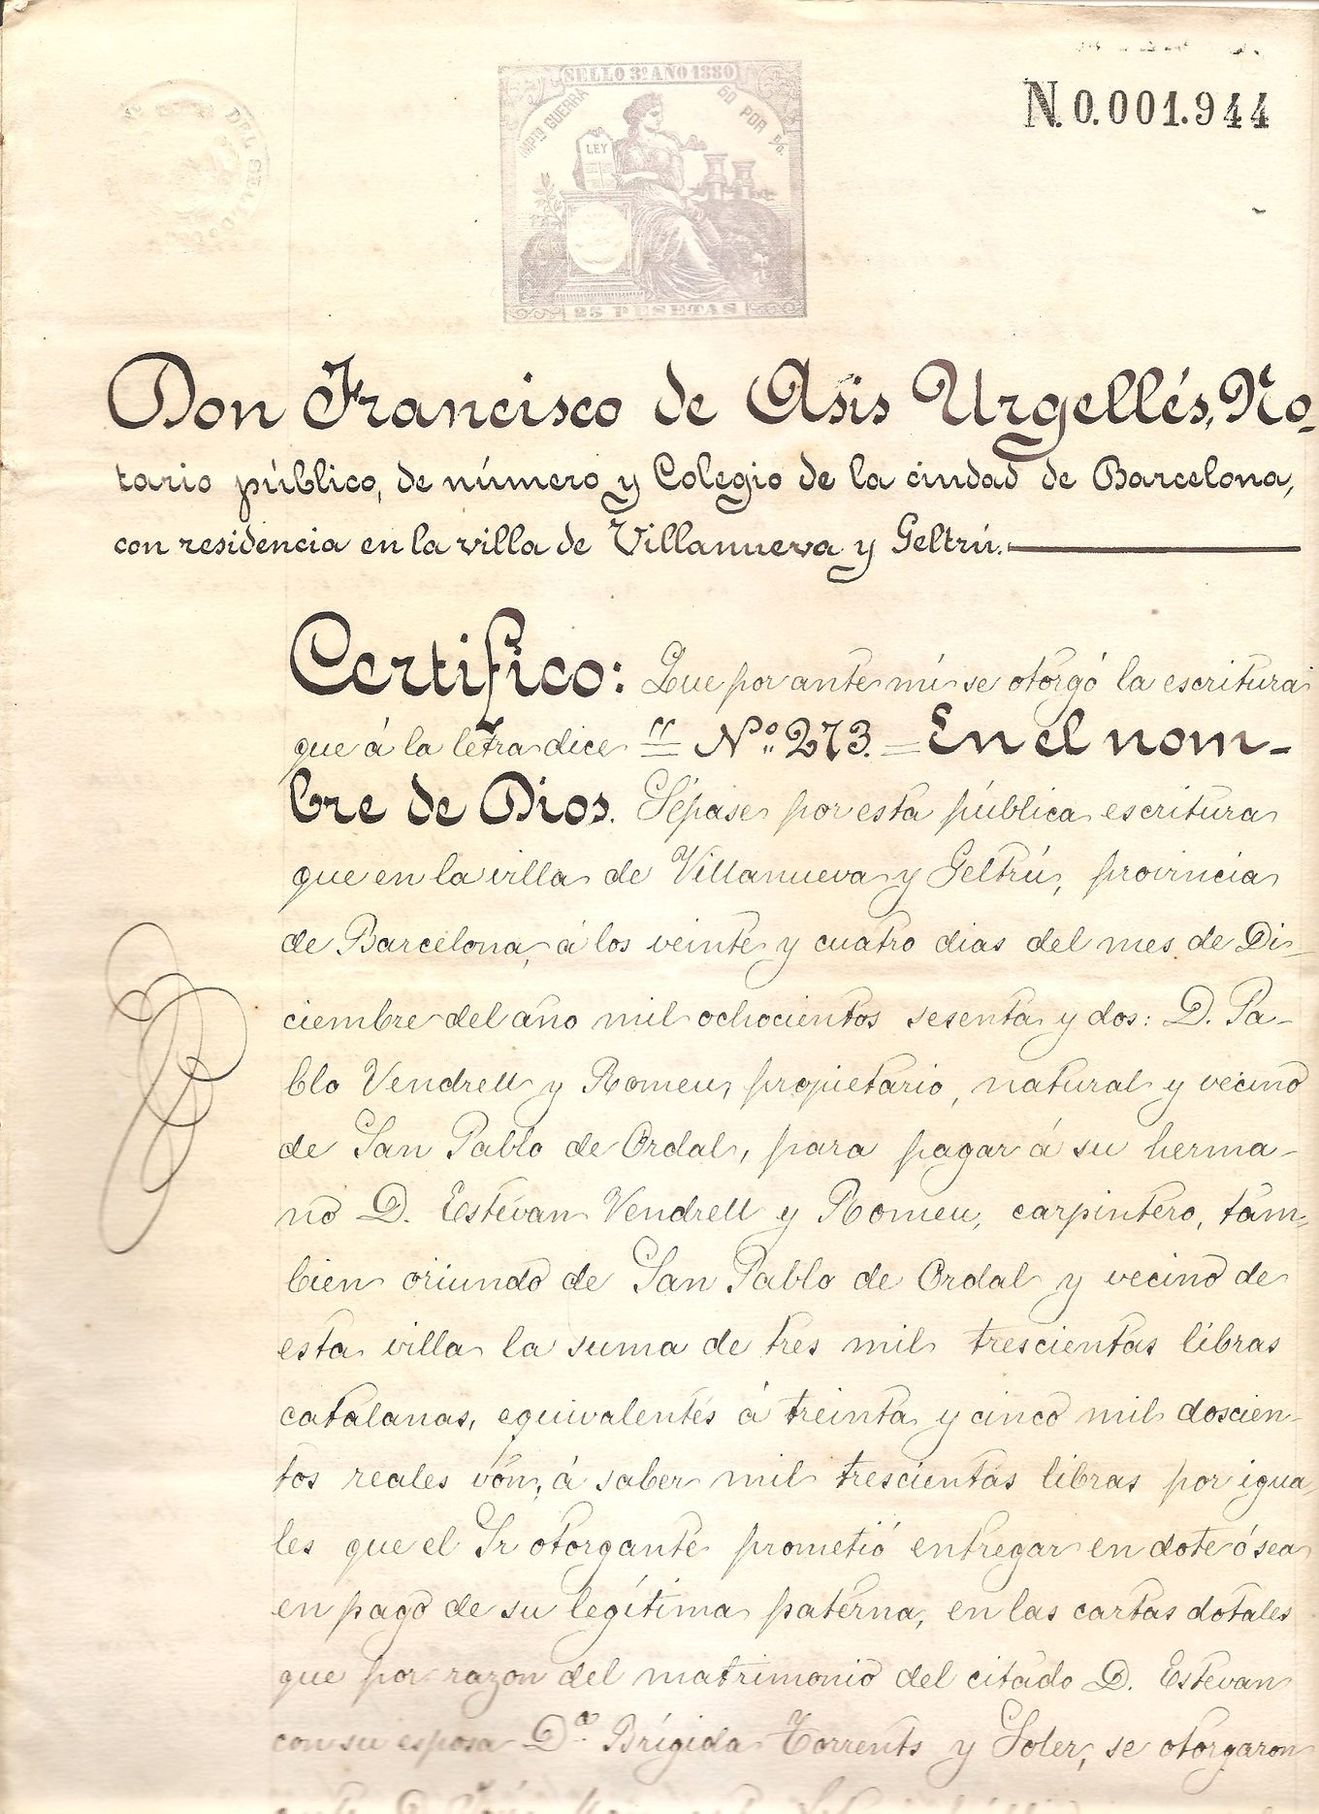 SELLO 3º AÑO 1880
IMPTO GUERRA
50 POR %.
LEY
DEL
25 PESETAS
N. 0.001.944
Don Francisco de Asis Urgellés, No-
tario público, de número y Colegio de la ciudad de Barcelona,
con residencia en la villa de Villanueva y Geltrú.
Certifico: Que por ante mí se otorgó la escritura
que á la letra dice " Nº 273. = En el nom-
bre de Dios. Sépase por esta pública escritura
que en la villa de Villanueva y Geltrú, provincia
de Barcelona, á los veinte y cuatro dias del mes de Di-
ciembre del año mil ochocientos sesenta y dos: D. Pa-
blo Vendrell y Romeu, propietario, natural y vecino
de San Pablo de Ordal, para pagar á su herma-
no D. Estévan Vendrell y Romeu, carpintero, tam-
bien oriundo de San Pablo de Ordal y vecino de
esta villa la suma de tres mil trescientas libras
catalanas, equivalentes á treinta y cinco mil doscien-
tos reales vón, á saber mil trescientas libras por igua-
les que el Sr otorgante prometió entregar en dote ó sea
en pago de su legítima paterna, en las cartas dotales
que por razon del matrimonio del citado D. Estevan
con su esposa Dª Brígida Torrents y Soler, se otorgaron